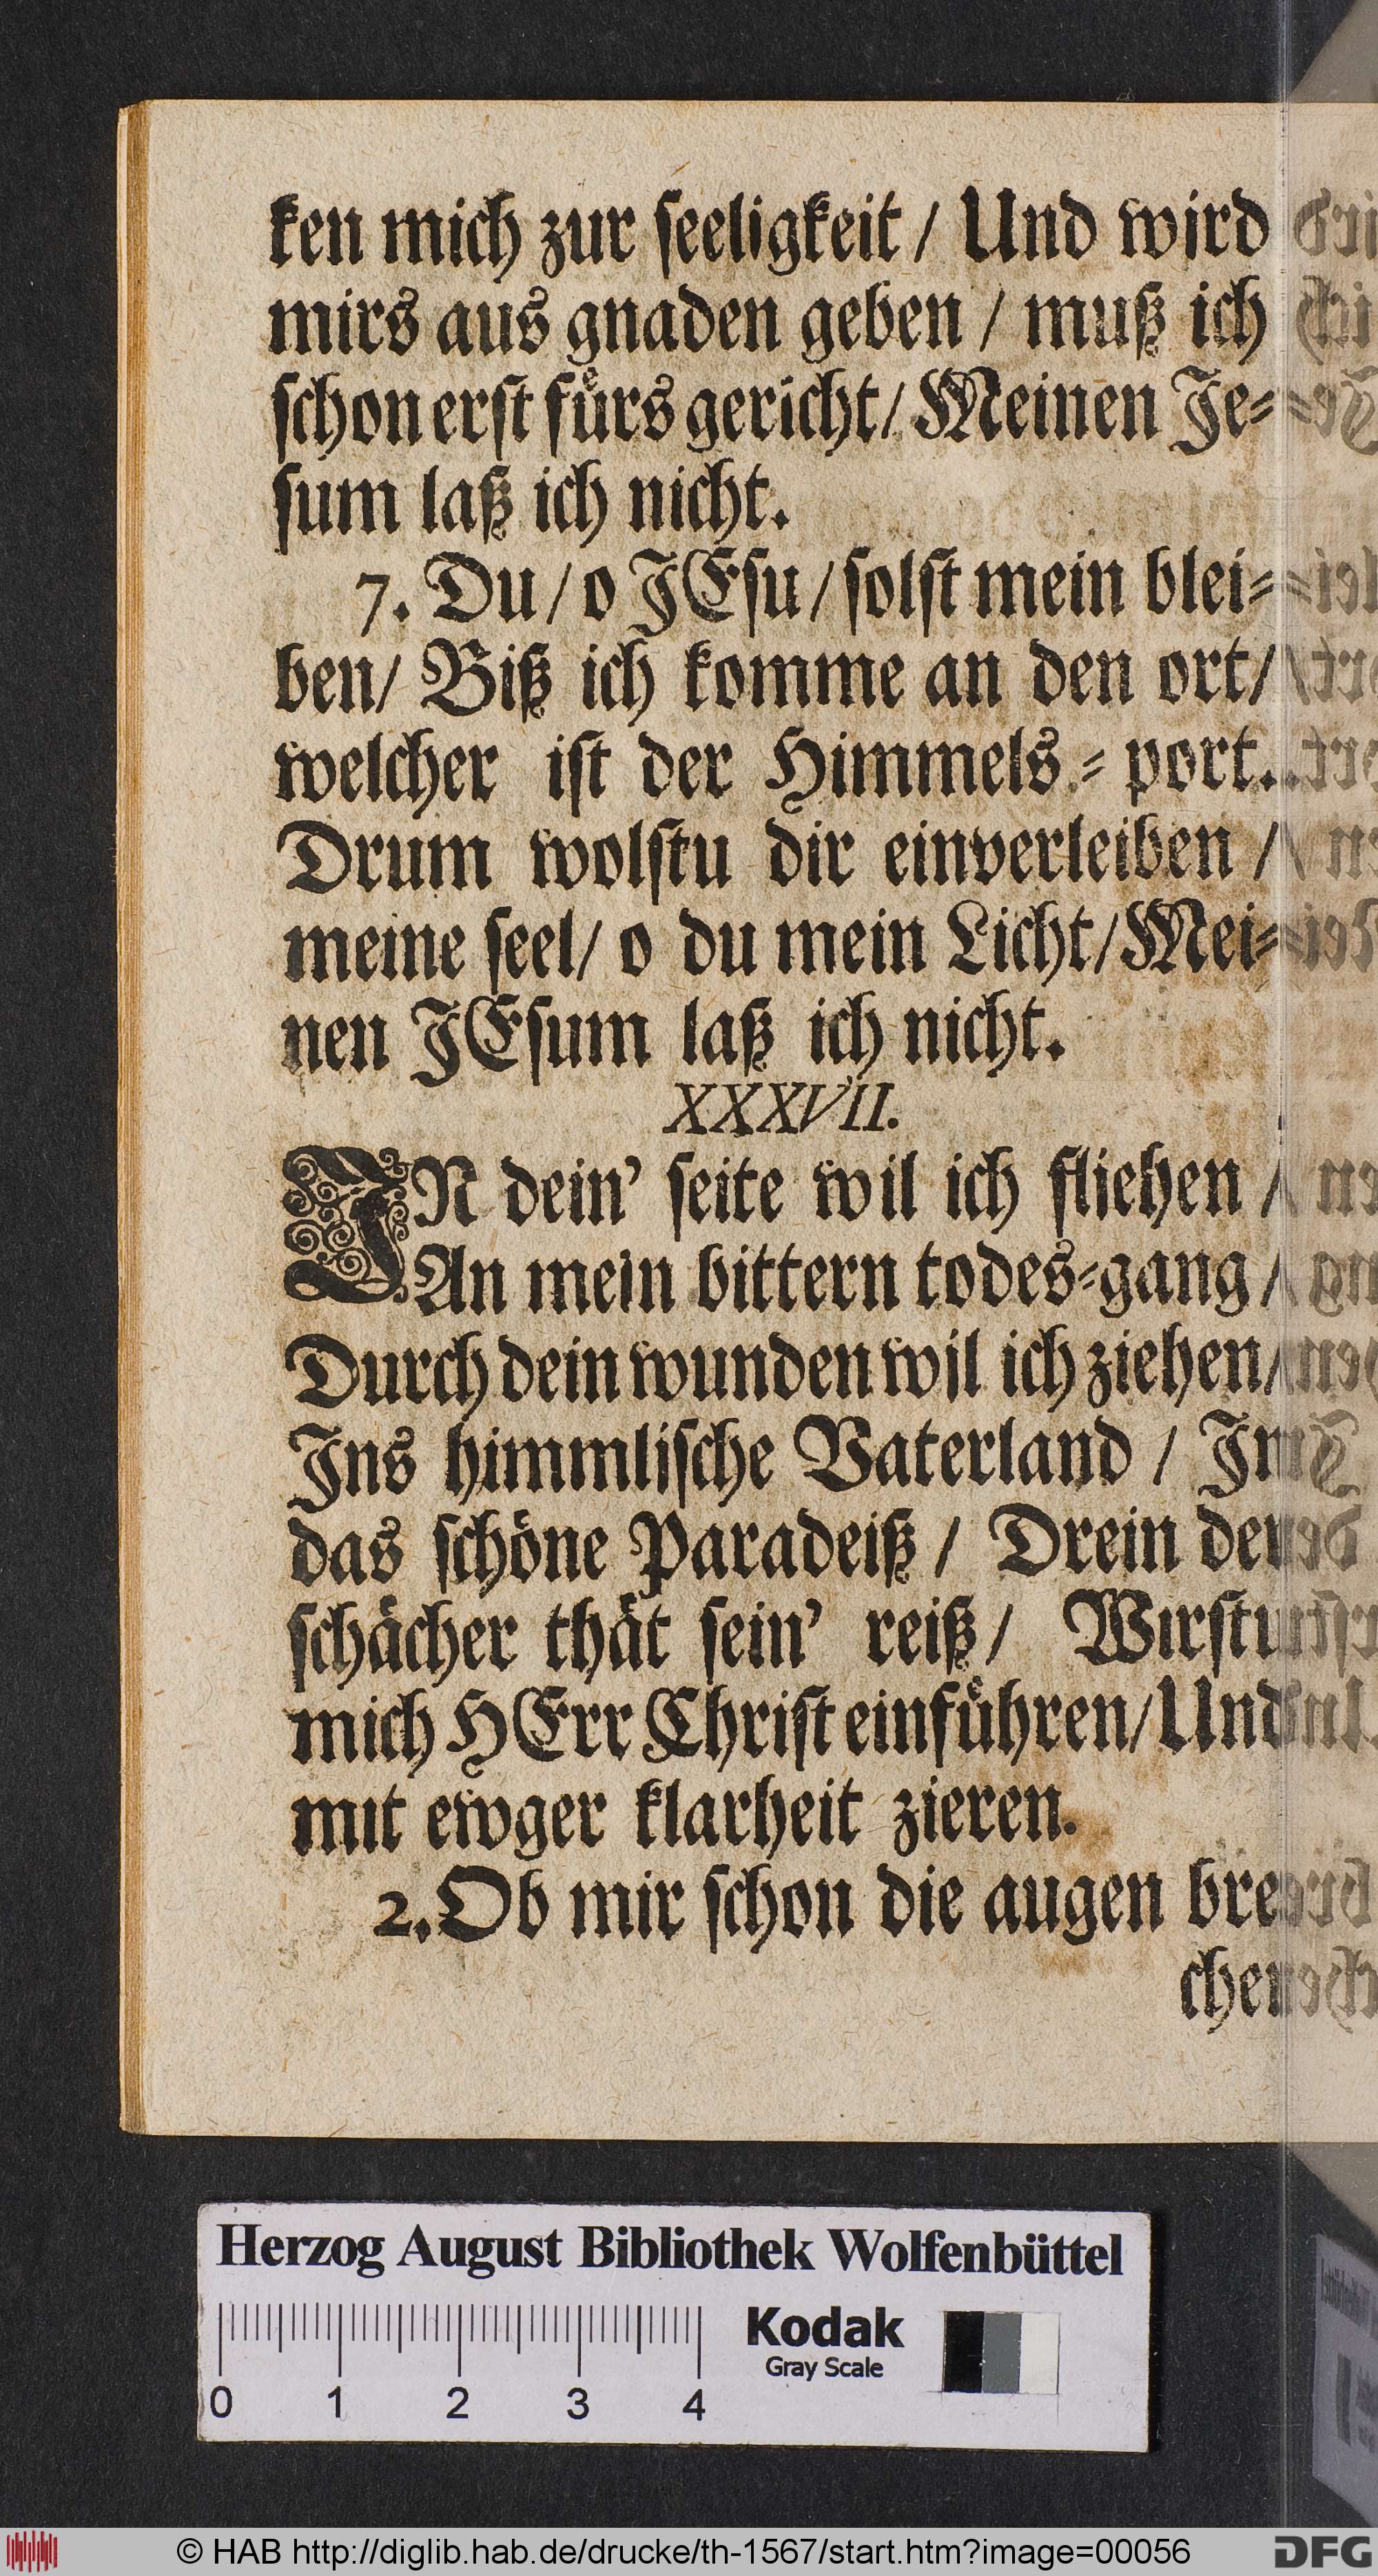 ken mich zur seeligkeit / Und wird
mirs aus gnaden geben / muß ich
schon erst fürs gericht / Meinen Je⸗
sum laß ich nicht.
7. Du / o JEsu / solst mein blei⸗
ben / Biß ich komme an den ort /
welcher ist der Himmels⸗port.
Drum wolstu dir einverleiben /
meine seel / o du mein Licht / Mei⸗
nen JEsum laß ich nicht.
XXXVII.
JN dein’ seite wil ich fliehen /
An mein bittern todes⸗gang /
Durch dein wunden wil ich ziehen /
Jns himmlische Vaterland / Jn
das schöne Paradeiß / Drein der
schächer thät sein’ reiß / Wirstu
mich HErr Christ einführen / Und
mit ewger klarheit zieren.
2. Ob mir schon die augen bre
chen
Herzog August Bibliothek Wolfenbüttel
Kodak
Gray Scale
0 1 2 3 4
© HAB http://diglib.hab.de/drucke/th-1567/start.htm?image=00056
DFG